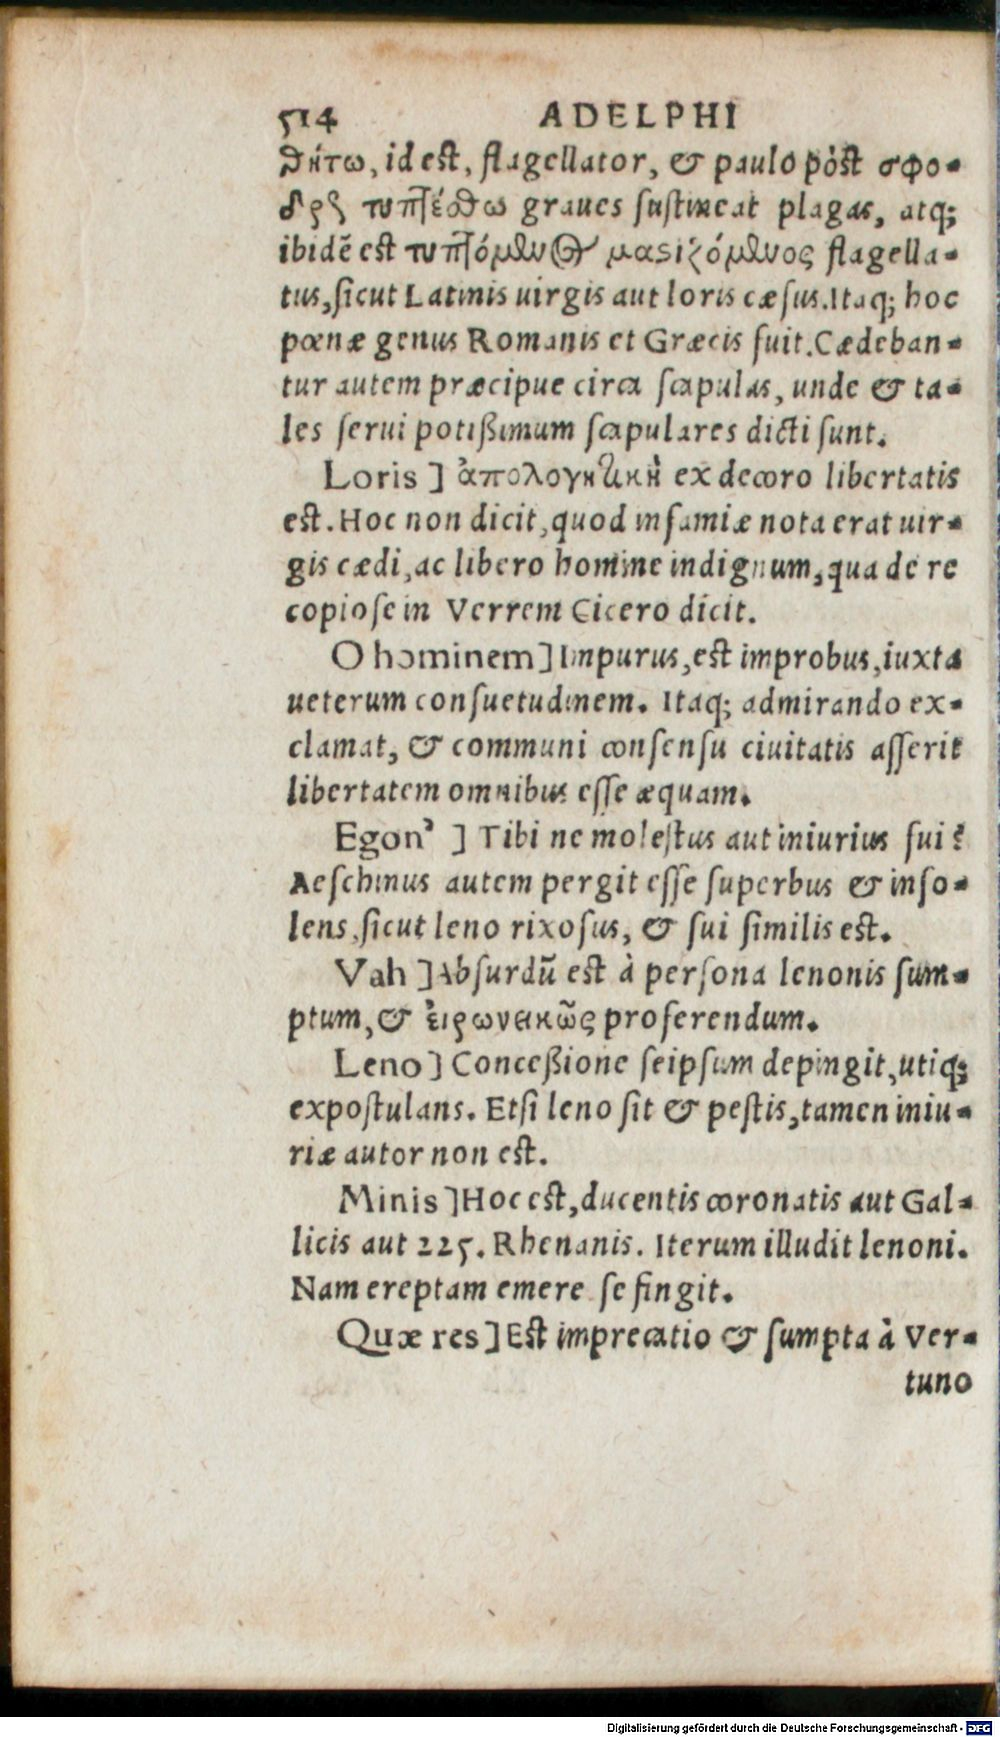 514 ADELPHI
θήτω, id est, flagellator, & paulo pòst σφο-
δρῶς τυπτέσθω graues sustineat plagas, atq;
ibidē est τυπτόμενος μαστιζόμενος flagella-
tus, sicut Latinis uirgis aut loris cæsus. Itaq; hoc
pœnæ genus Romanis et Græcis fuit. Cædeban-
tur autem præcipue circa scapulas, unde & ta-
les serui potißimum scapulares dicti sunt.
Loris] ἀπολογητικὴ ex decoro libertatis
est. Hoc non dicit, quod infamiæ nota erat uir-
gis cædi, ac libero homine indignum, qua de re
copiose in Verrem Cicero dicit.
O hominem] Impurus, est improbus, iuxta
ueterum consuetudinem. Itaq; admirando ex-
clamat, & communi consensu ciuitatis asserit
libertatem omnibus esse æquam.
Egon'] Tibi ne molestus aut iniurius fui?
Aeschinus autem pergit esse superbus & inso-
lens, sicut leno rixosus, & sui similis est.
Vah] Absurdū est à persona lenonis sum-
ptum, & εἰρωνεικῶς proferendum.
Leno] Conceßione seipsum depingit, utiq;
expostulans. Etsi leno sit & pestis, tamen iniu-
riæ autor non est.
Minis] Hoc est, ducentis coronatis aut Gal-
licis aut 225. Rhenanis. Iterum illudit lenoni.
Nam ereptam emere se fingit.
Quæ res] Est imprecatio & sumpta à Ver-
tuno
Digitalisierung gefördert durch die Deutsche Forschungsgemeinschaft - DFG